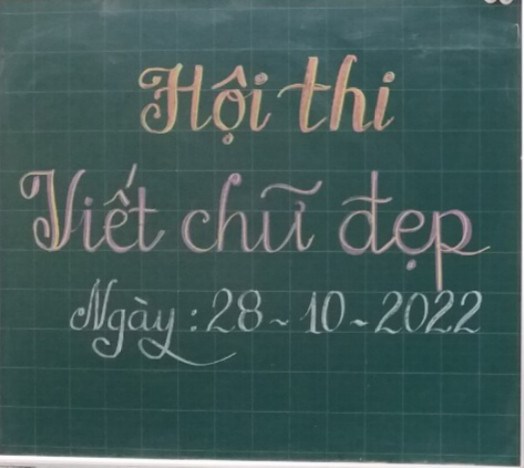 Hội thi
Viết chữ đẹp
Ngày: 28~10~2022